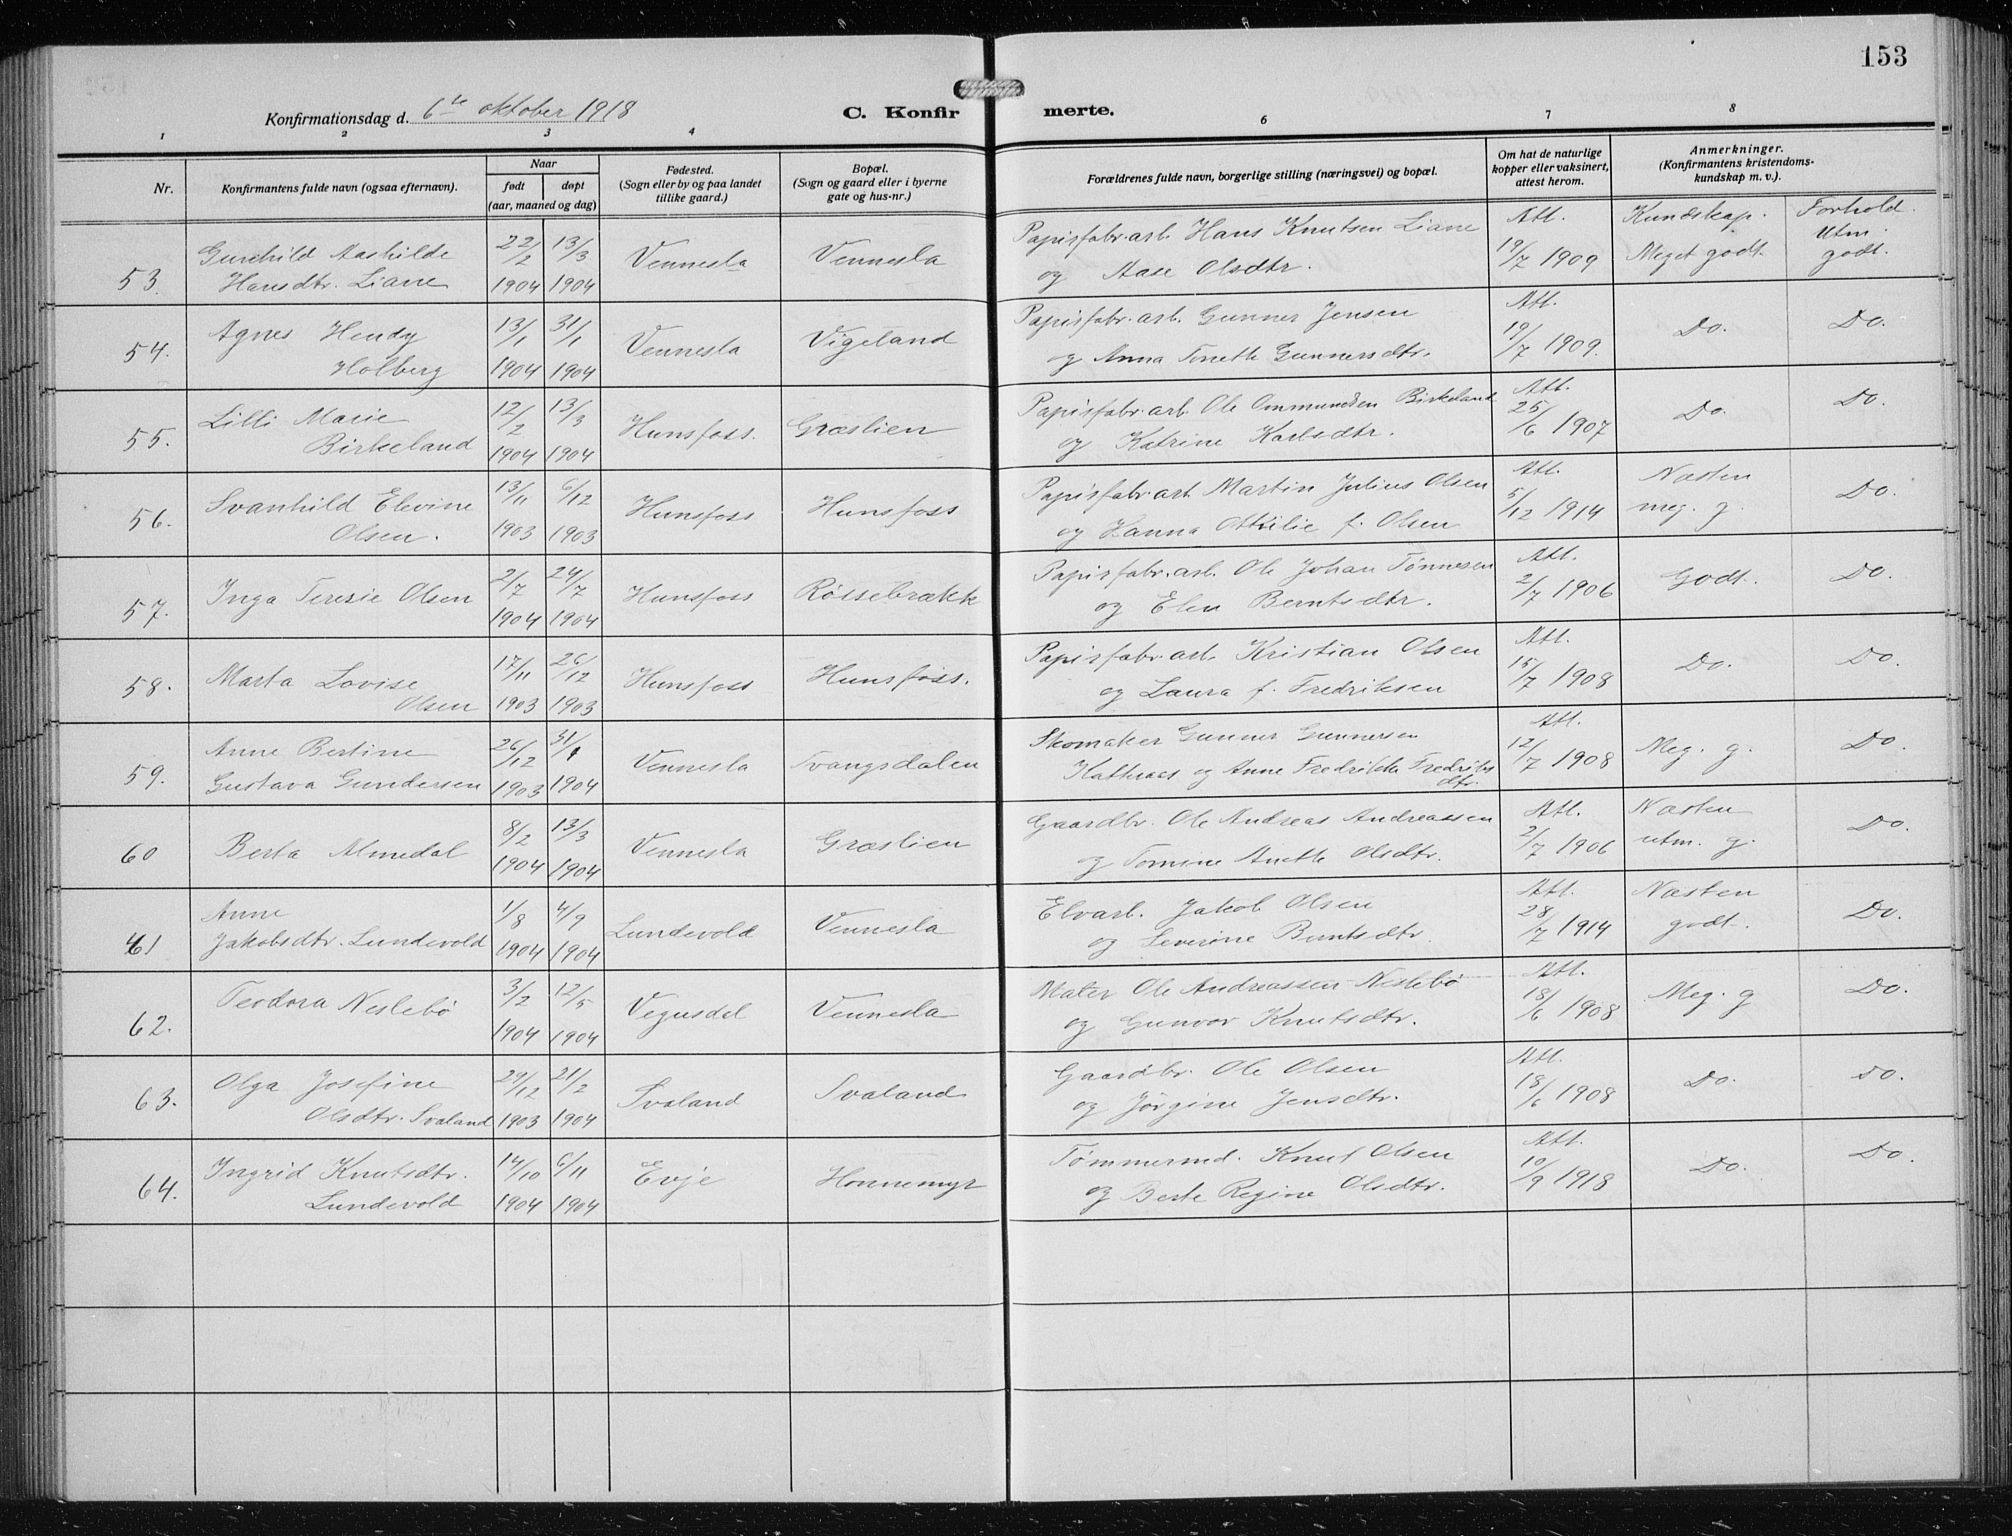 153
Konfirmationsdag d. 6te oktober 1918
C. Konfirmerte.
1 2 3 4 6 7 8
Nr.
Konfirmantens fulde navn (ogsaa efternavn).
Naar
født døpt
(aar, maaned og dag)
Fødested.
(Sogn eller by og paa landet
tillike gaard.)
Bopæl.
(Sogn og gaard eller i byerne
gate og hus-nr.)
Forældrenes fulde navn, borgerlige stilling (næringsvei) og bopæl.
Om hat de naturlige
kopper eller vaksinert,
attest herom.
Anmerkninger.
(Konfirmantens kristendoms-
kundskap m. v.).
Kundskap. Forhold.
53. Gunhild Aashilde
Hansdtr. Liane
22/2 1904 13/3 1904
Vennesla Vennesla
Papirfabr.arb. Hans Knutsen Liane
og Aase Olsdtr.
Att.
19/7 1909
Meget godt. Utm. godt.
54. Agnes Hendy
Holberg
13/1 1904 31/1 1904
Vennesla Vigeland
Papirfabr.arb. Gunner Jensen
og Anna Tonette Gunnersdtr.
Att.
19/7 1909.
Do. Do.
55. Lilli Marie
Birkeland
12/2 1904 13/3 1904
Hunsfoss. Græslien
Papirfabr.arb. Ole Ommundsen Birkeland
og Katrine Karlsdtr.
Att.
25/6 1907
Do. Do.
56. Svanhild Elevine
Olsen.
13/11 1903 6/12 1903
Hunsfoss Hunsfoss
Papirfabr.arb. Martin Julius Olsen
og Hanna Ottilie f. Olsen
Att.
5/12 1914
Næsten
meg. g. Do.
57. Inga Teresie Olsen
2/7 1904 24/7 1904
Hunsfoss Røssebrækk
Papirfabr.arb. Ole Johan Tønnesen
og Elen Berntsdtr.
Att.
2/7 1906
Godt. Do.
58. Marta Lovise
Olsen
17/11 1903 26/12 1903
Hunsfoss Hunsfoss.
Papirfabr.arb. Kristian Olsen
og Laura f. Fredriksen
Att.
15/7 1908
Do. Do.
59. Anne Bertine
Gustava Gundersen
26/12 1903 31/1 1904
Vennesla Tvangsdalen
Skomaker Gunner Gunnersen
Kathraas og Anne Fredrikka Fredriks
dtr.
Att.
12/7 1908
Meg. g. Do.
60 Berta Almedal
8/2 1904 13/3 1904
Vennesla Græslien
Gaardbr. Ole Andreas Andreassen
og Tomine Anette Olsdtr.
Att.
2/7 1906
Næsten
utm. g. Do.
61 Anne
Jakobsdtr. Lundevold
1/8 1904 4/9 1904
Lundevold Vennesla
Elvarb. Jakob Olsen
og Severine Berntsdtr.
Att.
28/7 1914
Næsten
godt. Do.
62. Teodora Neslebø
3/2 1904 12/5 1904
Vegusdel Vennesla
Maler Ole Andreassen Neslebø
og Gunvor Knutsdtr.
Att.
18/6 1908
Meg. g Do.
63. Olga Josefine
Olsdtr. Svaland
29/12 1903 21/2 1904
Svaland Svaland
Gaardbr. Ole Olsen
og Jørgine Jensdtr.
Att.
18/6 1908
Do. Do.
64. Ingrid Knutsdtr.
Lundevold
14/10 1904 6/11 1904
Evje Honnemyr
Tømmermd. Knut Olsen
og Berte Regine Olsdtr.
Att.
10/9 1918
Do. Do.